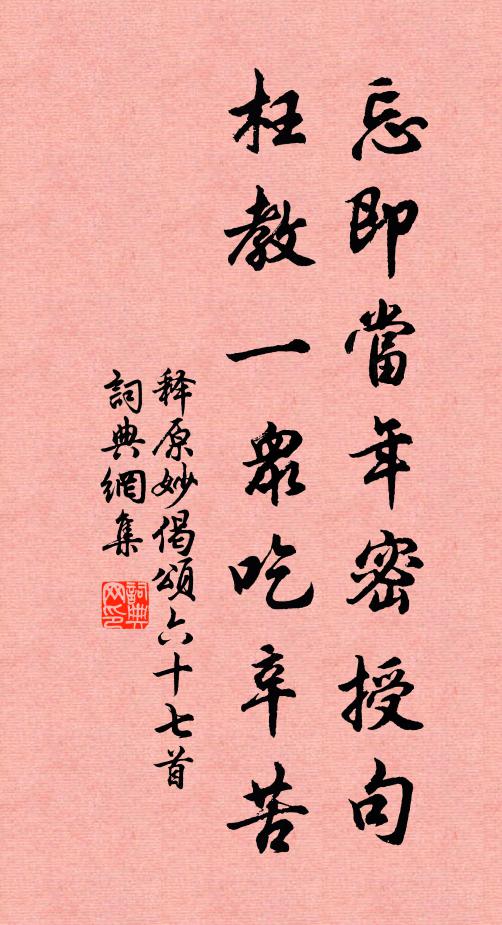 忘即當年密授句
枉教一衆吃辛苦
释原妙偈頌六十七首
詞典網集
詞典網印